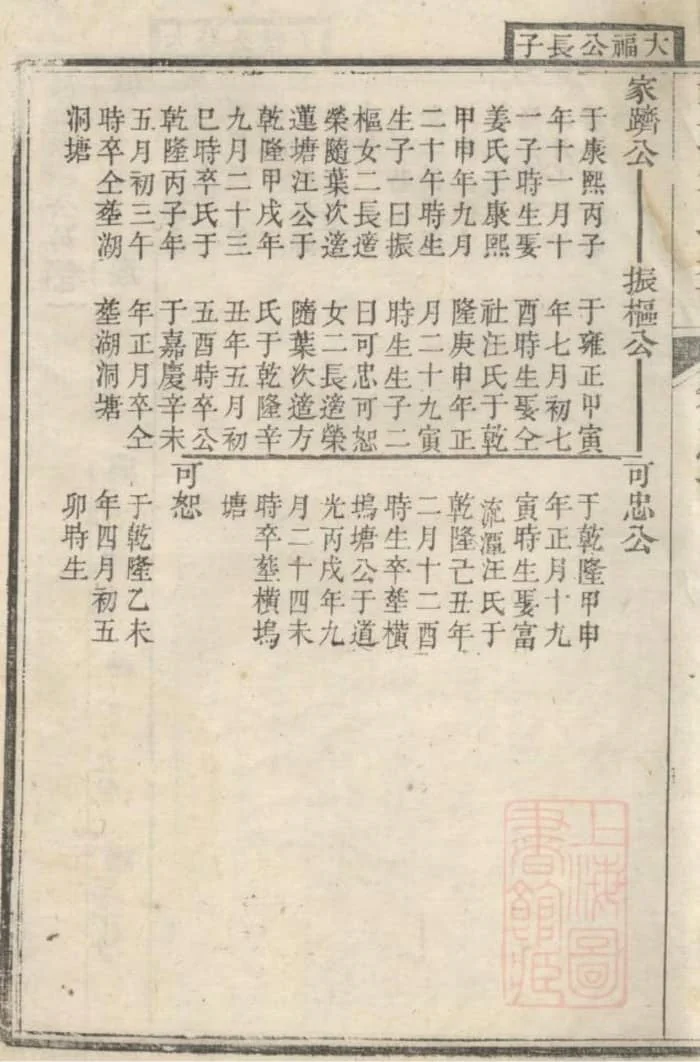 大福公長子
家躋公
于康熙丙子
年十一月十
一子時生娶
姜氏于康熙
甲申年九月
二十午時生
生子一曰振
樞女二長適
榮隨葉次適
蓮塘汪公于
乾隆甲戌年
九月二十三
巳時卒氏于
乾隆丙子年
五月初三午
時卒仝塟湖
洞塘
振樞公
于雍正甲寅
年七月初七
酉時生娶仝
社汪氏于乾
隆庚申年正
月二十九寅
時生生子二
曰可忠可恕
女二長適榮
隨葉次適方
氏于乾隆辛
丑年五月初
五酉時卒公
于嘉慶辛未
年正月卒仝
塟湖洞塘
可忠公
于乾隆甲申
年正月十九
寅時生娶富
流潭汪氏于
乾隆己丑年
二月十二酉
時生卒塟橫
塢塘公于道
光丙戌年九
月二十四未
時卒塟橫塢
塘
可恕
于乾隆乙未
年四月初五
卯時生
上海圖
書館藏